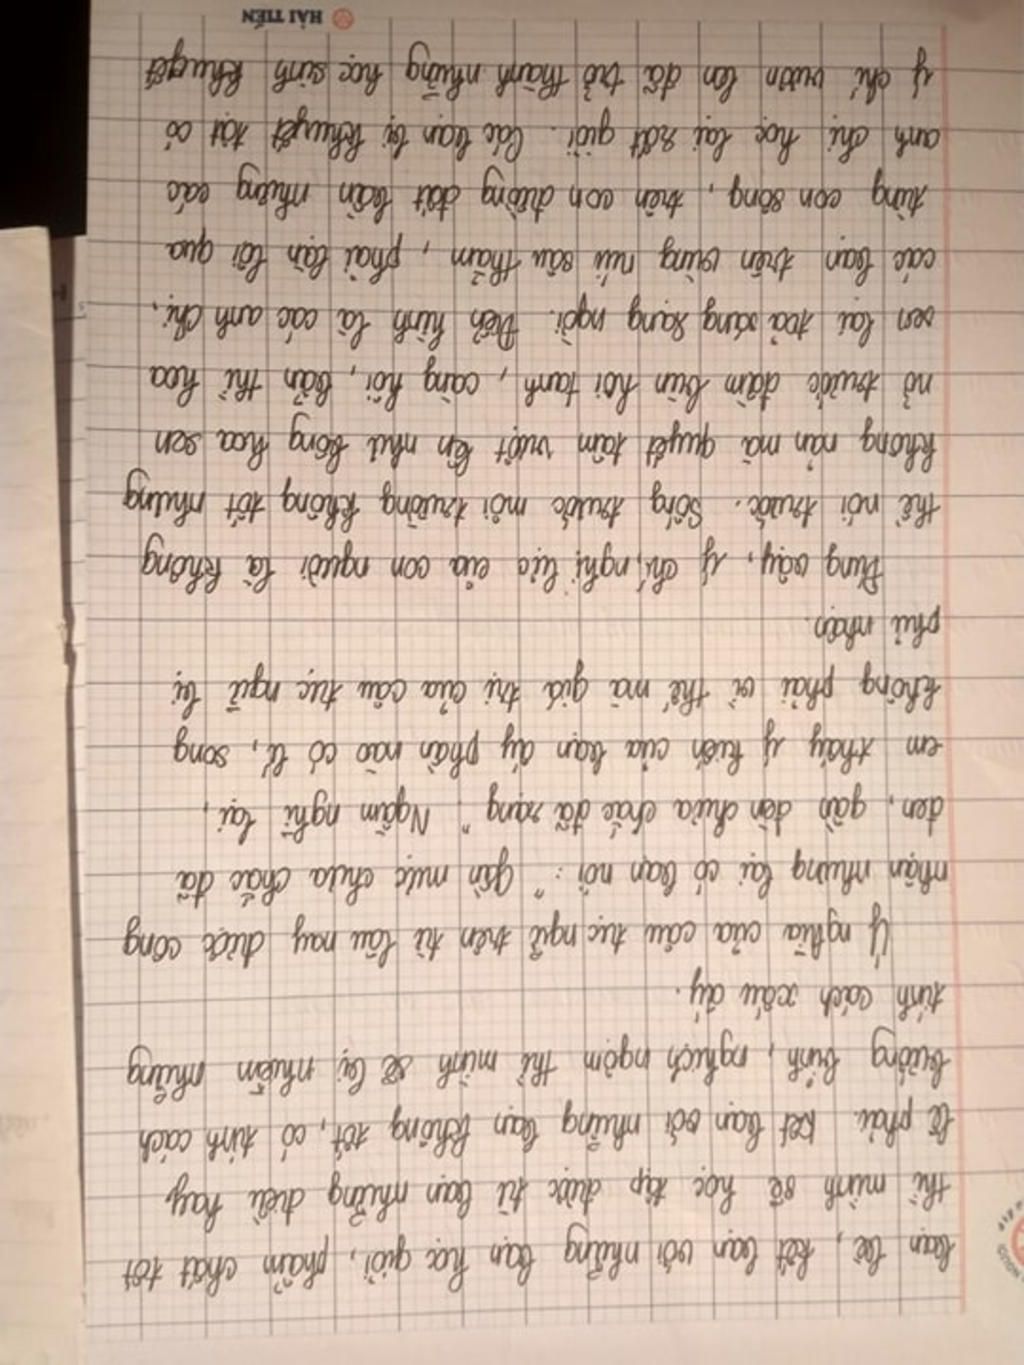 bạn bè, kết bạn với những bạn học giỏi, phẩm chất tốt
thì mình sẽ học tập được từ bạn những điều hay
lẽ phải. Kết bạn với những bạn không tốt, có tính cách
bướng bỉnh, nghịch ngợm thì mình sẽ lại nhuễn những
tính cách xấu ấy.
Ý nghĩa của câu tục ngữ trên từ lâu nay được công
nhận nhưng lại có bạn nói: "Gần mực chưa chắc đã
đen, gần đèn chưa chắc đã rạng". Ngẫm nghĩ lại,
em thấy ý kiến của bạn ấy phần nào có lí, song
không phải vì thế mà giá trị của câu tục ngữ bị
phủ nhận.
Đúng vậy, ý chí, nghị lực của con người là không
thể nói trước. Sống trước môi trường không tốt nhưng
không nản mà quyết tâm vượt lên như bông hoa sen
nở trước đầm bùn hôi tanh, càng hôi, bẩn thì hoa
sen lại toả sáng rạng ngời. Điển hình là các anh chị,
các bạn trên vùng núi sâu thẳm, phải lặn lội qua
từng con sông, trên con đường đất bẩn nhưng các
anh chị học lại rất giỏi. Các bạn bị khuyết tật có
ý chí vươn lên đã trở thành những học sinh khuyết
HẢI TIẾN